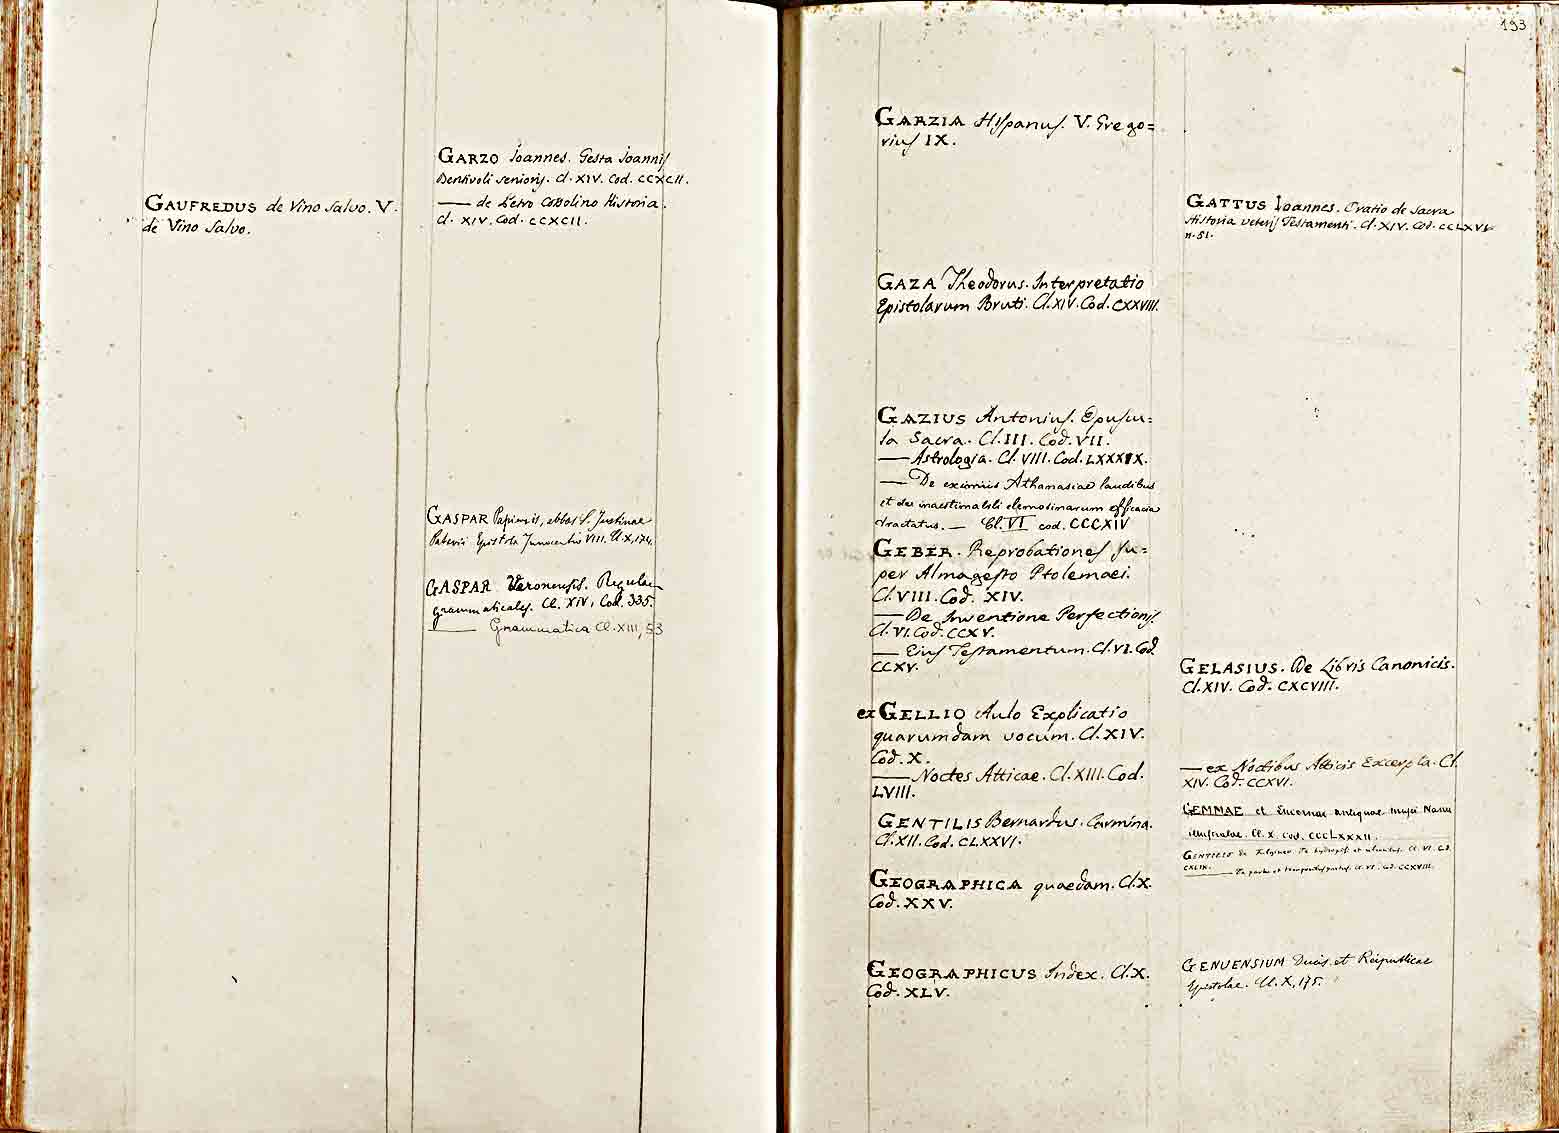 GAUFREDUS de Vino Salvo. V.
de Vino Salvo.
GARZO Ioannes. Gesta Ioannis
Bentivoli senioris. Cl. XIV. Cod. CCXCII.
— de Petro Cottolino Historia.
Cl. XIV. Cod. CCXCII.
GASPAR Papiensis, abbas S. Justinae
Patavii Epistola Innocentio VIII. Cl. X, 174.
GASPAR Veronensis. Regulae
grammaticales. Cl. XIV, Cod. 335.
— Grammatica Cl. XIII, 53
193
GARZIA Hispanus. V. Grego=
rius IX.
GAZA Theodorus. Interpretatio
Epistolarum Bruti. Cl. XIV. Cod. CXXVIII.
GAZIUS Antonius. Opuscu=
la Sacra. Cl. III. Cod. VII.
— Astrologia. Cl. VIII. Cod. LXXXIX.
— De eximiis Athanasiae laudibus
et de inaestimabili elemosinarum efficacia
tractatus. — Cl. VI cod. CCCXIV
GEBER. Reprobationes su=
per Almagesto Ptolemaei.
Cl. VIII. Cod. XIV.
— De Inventione Perfectionis.
Cl. VI. Cod. CCXV.
— Eius Testamentum. Cl. VI. Cod.
CCXV.
ex GELLIO Aulo Explicatio
quarumdam vocum. Cl. XIV.
Cod. X.
— Noctes Atticae. Cl. XIII. Cod.
LVIII.
GENTILIS Bernardus. Carmina.
Cl. XII. Cod. CLXXVI.
GEOGRAPHICA quaedam. Cl. X.
Cod. XXV.
GEOGRAPHICUS Index. Cl. X.
Cod. XLV.
GATTUS Ioannes. Oratio de Sacra
Historia veteris Testamenti. Cl. XIV. Cod. CCLXVI.
n. 51.
GELASIUS. De Libris Canonicis.
Cl. XIV. Cod. CXCVIII.
— ex Noctibus Atticis Excerpta. Cl.
XIV. Cod. CCXVI.
GEMMAE et antiquae musei Nanii
illustratae. Cl. X. Cod. CCCLXXXII.
GENTILIS de Fulgineo. De hydropisi et Cl. VI. Cd.
CXLIX. — De partu et tempore partus. Cl. VI. Cod. CCXVIII.
GENUENSIUM Ducis et Reipublicae
Epistolae. Cl. X, 175.